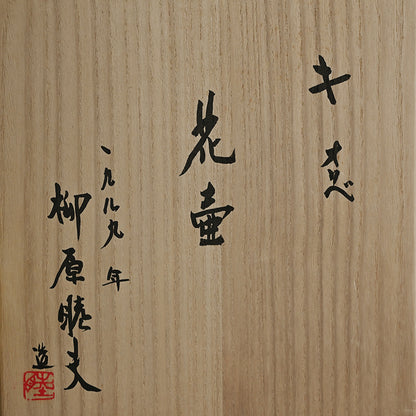 キ オリベ
花壺
一九八九年
柳原睦夫
造
睦